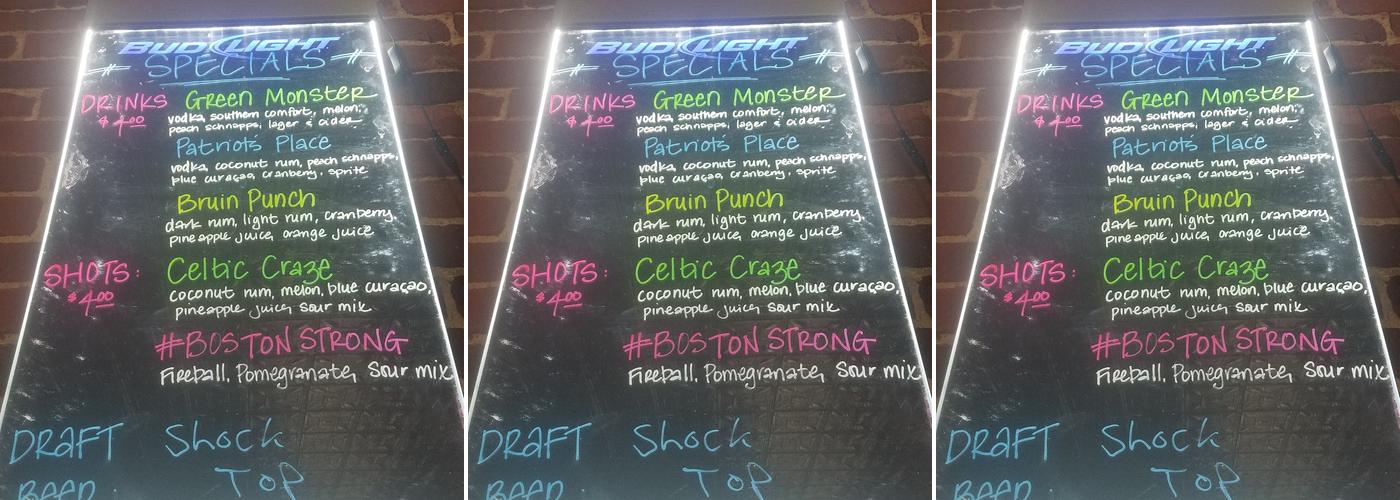 BUD LIGHT
SPECIALS
DRINKS Green Monster
$4.00 vodka, southern comfort, melon,
peach schnapps, lager & cider
Patriots Place
vodka, coconut rum, peach schnapps,
blue curaçao, cranberry, sprite
Bruin Punch
dark rum, light rum, cranberry,
pineapple juice, orange juice
SHOTS: Celtic Craze
$4.00 coconut rum, melon, blue curaçao,
pineapple juice, sour mix
#BOSTON STRONG
Fireball, Pomegranate, Sour mix
DRAFT Shock
Top
BUD LIGHT
SPECIALS
DRINKS Green Monster
$4.00 vodka, southern comfort, melon,
peach schnapps, lager & cider
Patriots Place
vodka, coconut rum, peach schnapps,
blue curaçao, cranberry, sprite
Bruin Punch
dark rum, light rum, cranberry,
pineapple juice, orange juice
SHOTS: Celtic Craze
$4.00 coconut rum, melon, blue curaçao,
pineapple juice, sour mix
#BOSTON STRONG
Fireball, Pomegranate, Sour mix
DRAFT Shock
Top
BUD LIGHT
SPECIALS
DRINKS Green Monster
$4.00 vodka, southern comfort, melon,
peach schnapps, lager & cider
Patriots Place
vodka, coconut rum, peach schnapps,
blue curaçao, cranberry, sprite
Bruin Punch
dark rum, light rum, cranberry,
pineapple juice, orange juice
SHOTS: Celtic Craze
$4.00 coconut rum, melon, blue curaçao,
pineapple juice, sour mix
#BOSTON STRONG
Fireball, Pomegranate, Sour mix
DRAFT Shock
Top